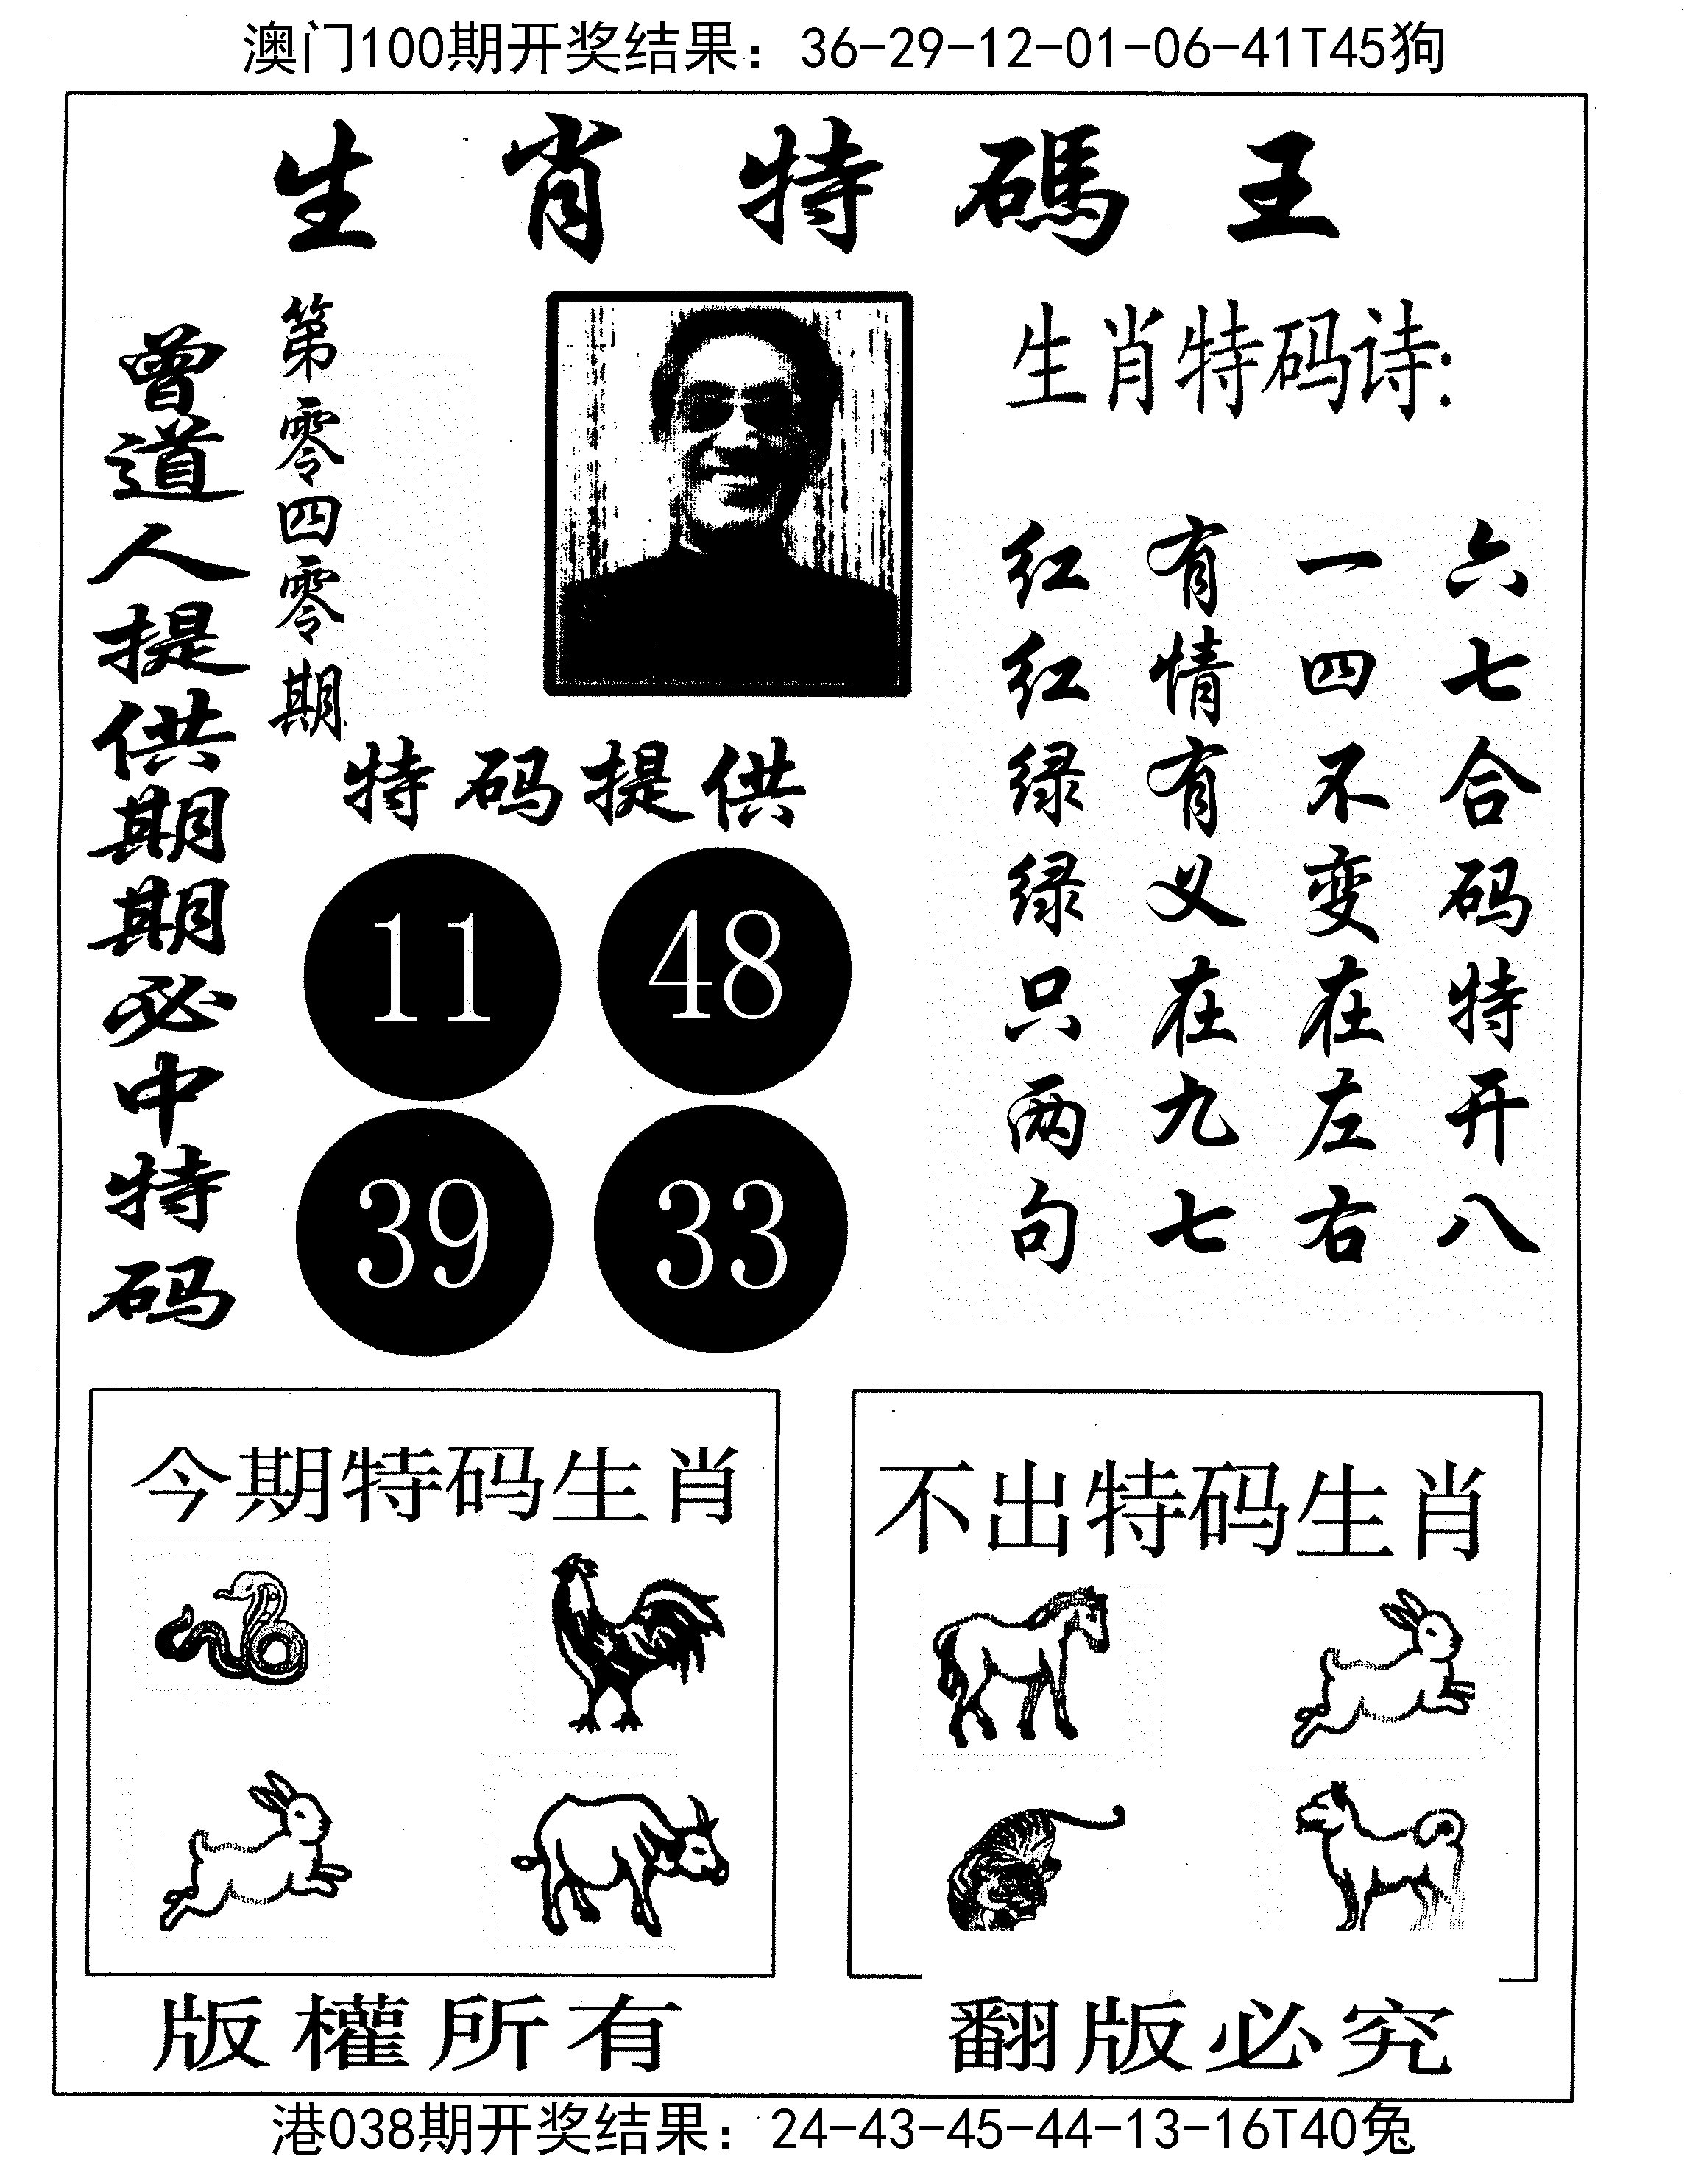 澳门100期开奖结果：36-29-12-01-06-41T45狗
生肖特碼王
曾道人提供期期必中特码
第零四零期
生肖特码诗:
六七合码特开八
一四不变在左右
有情有义在九七
红红绿绿只两句
特码提供
11 48
39 33
今期特码生肖
不出特码生肖
版權所有
翻版必究
港038期开奖结果：24-43-45-44-13-16T40兔